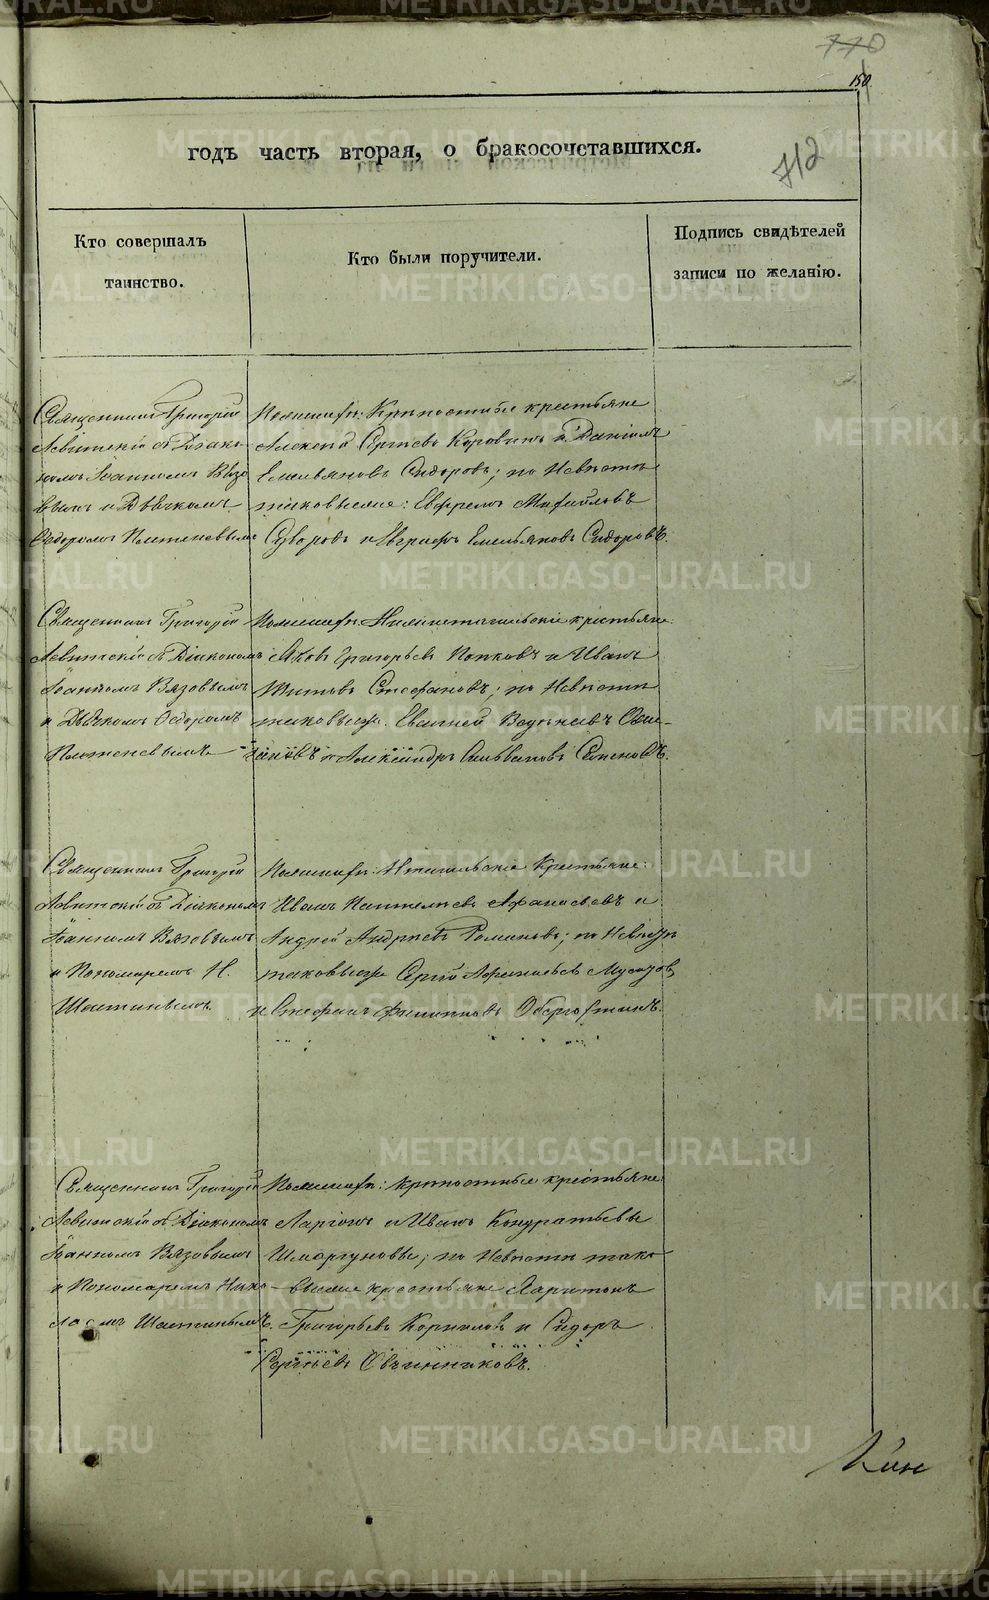 770
150.
годъ часть вторая, о бракосочетавшихся.
712
Кто совершалъ
таинство.
Кто были поручители.
Подпись свидѣтелей
записи по желанію.
Священникъ Григорій
Левитскій съ Діако-
номъ Іоанномъ Вязо
вымъ и Дьячкомъ
Ѳедоромъ
По женихѣ: Крѣпостные крестьяне
Алексѣй Сергѣевъ Коровинъ и Даніилъ
Емельяновъ Сидоровъ; по Невѣстѣ
таковыеже: Ефремъ Михайловъ
Суворовъ и Емельяновъ Сидоровъ.
Священникъ Григорій
Левитскій съ Діакономъ
Іоанномъ Вязовымъ
и Дьячкомъ Ѳедоромъ
По женихѣ: Нижнетагильскіе крестьяне
Яковъ Григорьевъ Попковъ и Иванъ
Титовъ Стефановъ; по Невѣстѣ
таковыеже. Евгеній
и Александръ Семеновъ.
Священникъ Григорій
Левитскій съ Діакономъ
Іоанномъ Вязовымъ
и Пономаремъ Н.
По женихѣ: Нтагильскіе Крестьяне:
Иванъ Пантелеевъ Афанасьевъ и
Андрей Андреевъ Романовъ; по Невѣстѣ
таковыеже Сергій
и Стефанъ Филипповъ
Священникъ Григорій
Левитскій съ Діакономъ
Іоанномъ Вязовымъ
и Пономаремъ Нико
лаемъ
По женихѣ: крѣпостные крестьяне
Ларіонъ и Иванъ Кондратьевы
Шмаргуновы; по Невѣстѣ тако
выеже крестьяне Харитонъ
Григорьевъ Корниловъ и Сидоръ
Сергѣевъ Овчинниковъ.
METRIKI.GASO-URAL.RU